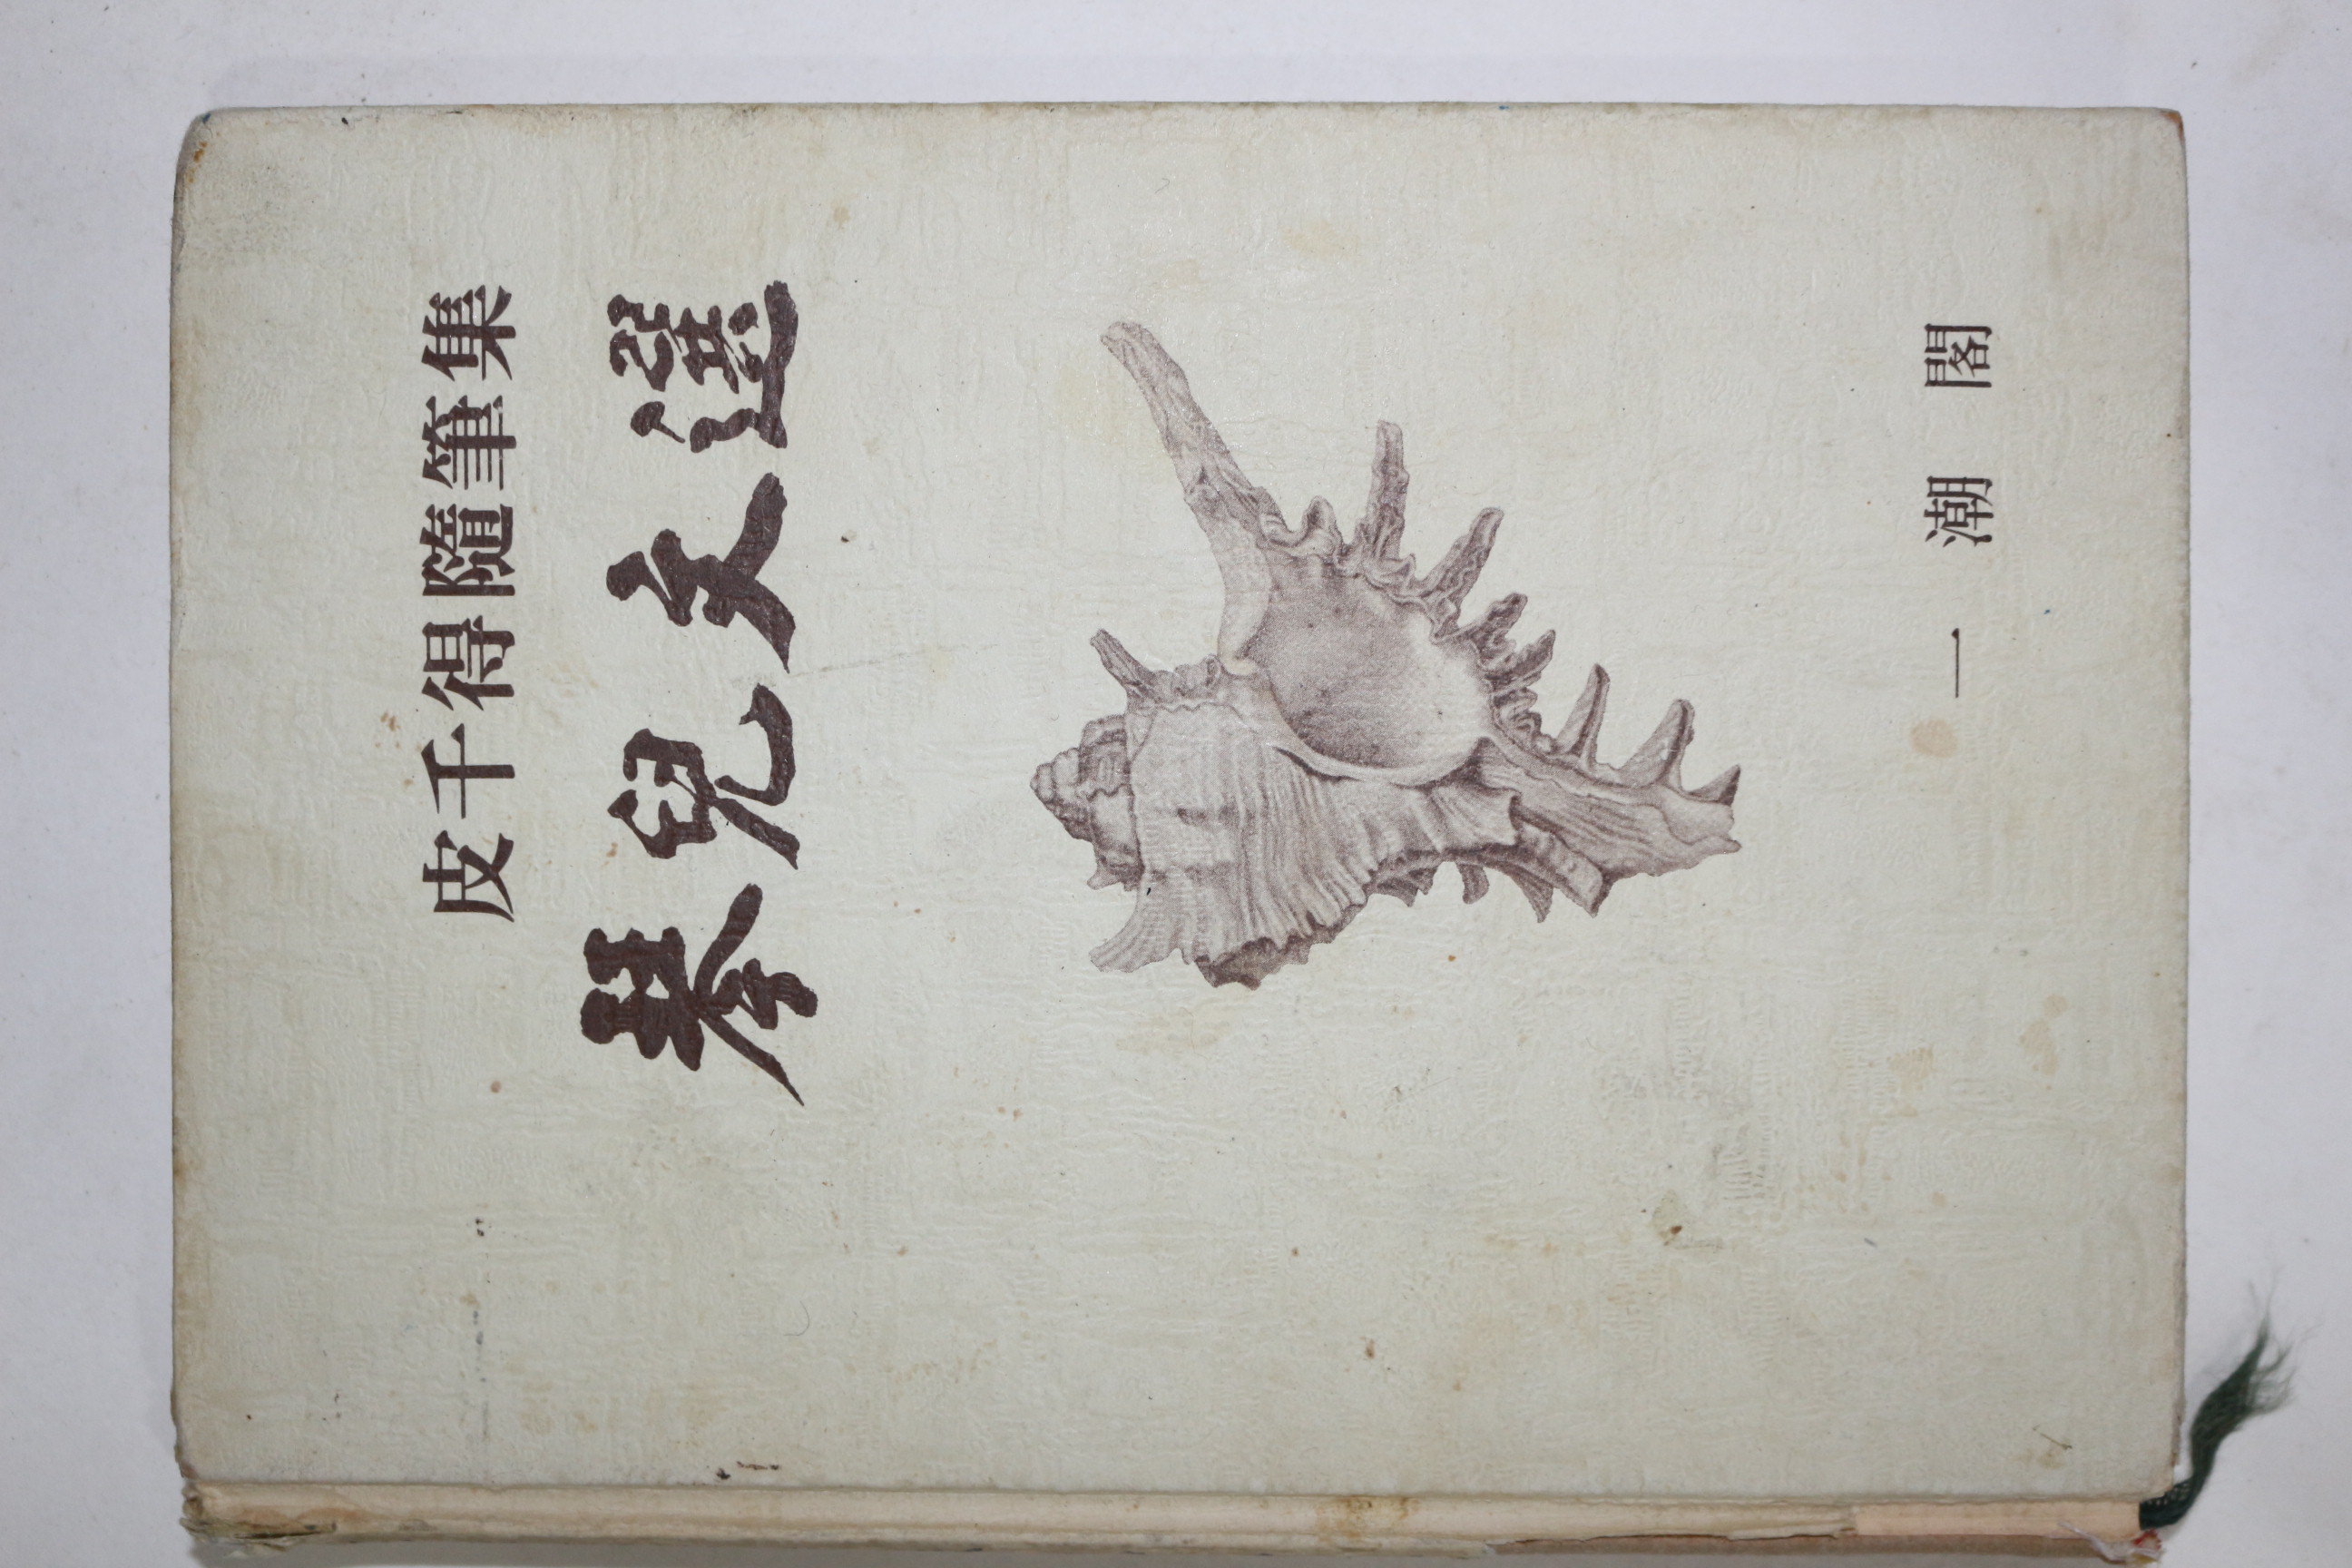 皮千得隨筆集
琴兒文選
一潮閣